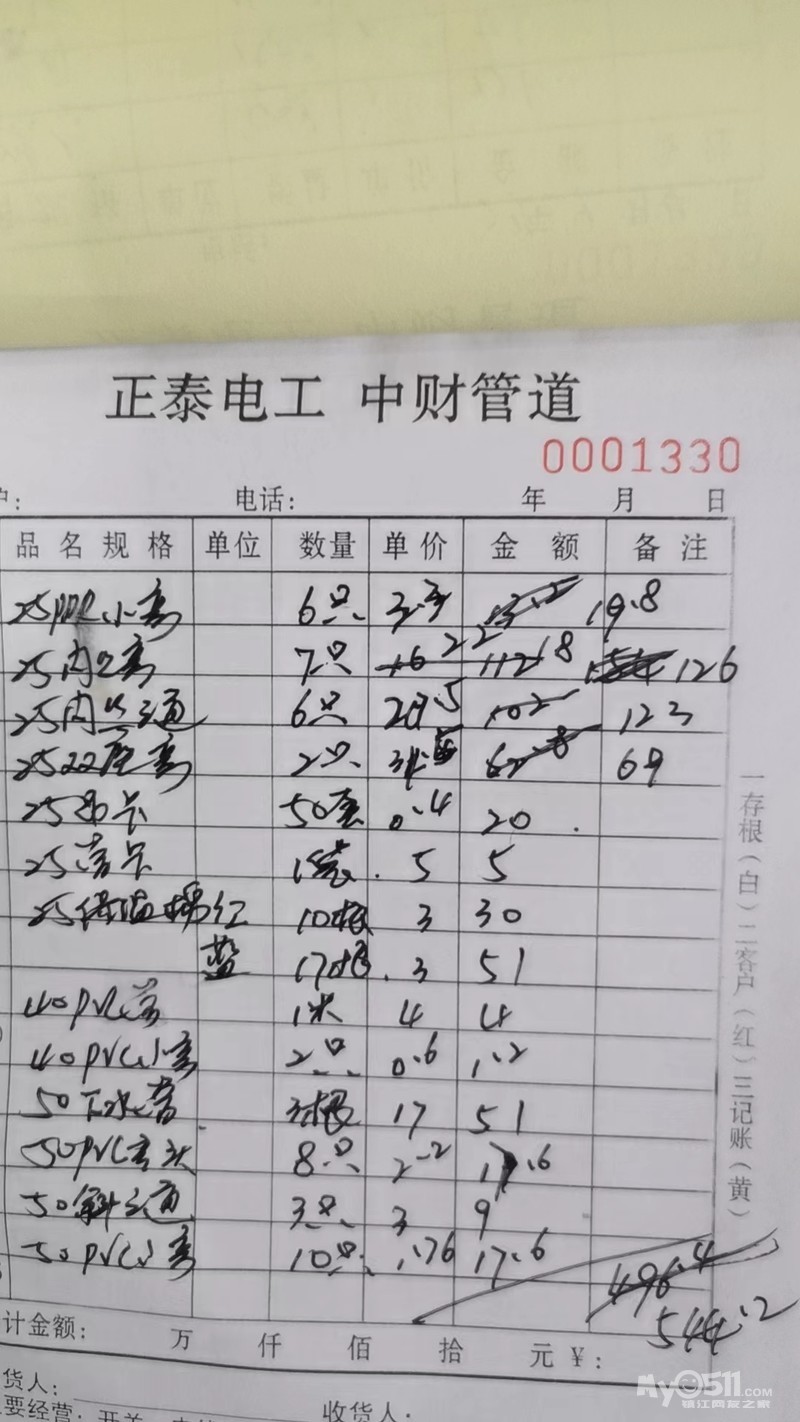 正泰电工 中财管道
0001330
户: 电话: 年 月 日
品名规格 单位 数量 单价 金额 备注
25PPR小弯 6只 3.3 19.8
25内乙弯 7只 18 126
25内丝三通 6只 20.5 123
25双座弯 2只 69
25吊卡 50套 0.4 20
25管卡 1袋 5 5
25保温棉红 10根 3 30
蓝 17根 3 51
40PVC管 1米 4 4
40PVC小弯 2只 0.6 1.2
50下水管 3根 17 51
50PVC弯头 8只 2.2 17.6
50斜三通 3只 3 9
50PVC小弯 10只 1.76 17.6
496.4
544.2
计金额: 万 仟 佰 拾 元¥:
货人:
收货人:
要经营:开关
一存根(白)二客户(红)三记账(黄)
My0511.com
镇江网友之家